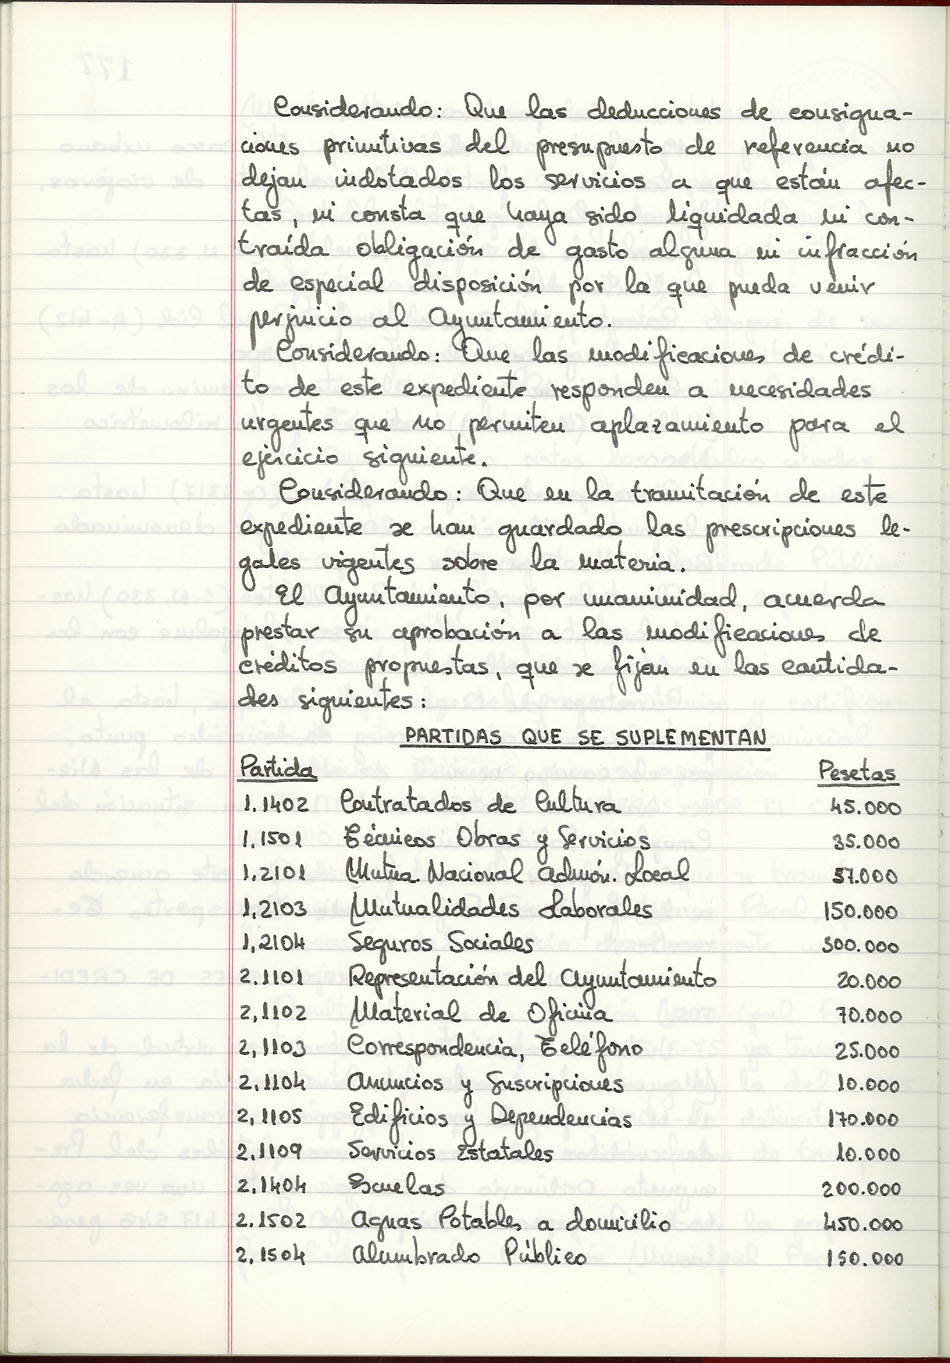 Considerando: Que las deducciones de consigna-
ciones primitivas del presupuesto de referencia no
dejan indotados los servicios a que están afec-
tas, ni consta que haya sido liquidada ni con-
traída obligación de gasto alguna ni infracción
de especial disposición por la que pueda venir
perjuicio al Ayuntamiento.
Considerando: Que las modificaciones de crédi-
to de este expediente responden a necesidades
urgentes que no permiten aplazamiento para el
ejercicio siguiente.
Considerando: Que en la tramitación de este
expediente se han guardado las prescripciones le-
gales vigentes sobre la materia.
El Ayuntamiento, por unanimidad, acuerda
prestar su aprobación a las modificaciones de
créditos propuestas, que se fijan en las cantida-
des siguientes:
PARTIDAS QUE SE SUPLEMENTAN
Partida Pesetas
1.1402 Contratados de Cultura 45.000
1,1501 Técnicos Obras y Servicios 35.000
1,2101 Mutua. Nacional Admón. Local 57.000
1,2103 Mutualidades Laborales 150.000
1,2104 Seguros Sociales 300.000
2.1101 Representación del Ayuntamiento 20.000
2,1102 Material de Oficina 70.000
2,1103 Correspondencia, Teléfono 25.000
2,1104 Anuncios y Suscripciones 10.000
2,1105 Edificios y Dependencias 170.000
2.1109 Servicios Estatales 10.000
2.1404 Escuelas 200.000
2.1502 Aguas Potables a domicilio 450.000
2,1504 Alumbrado Público 150.000